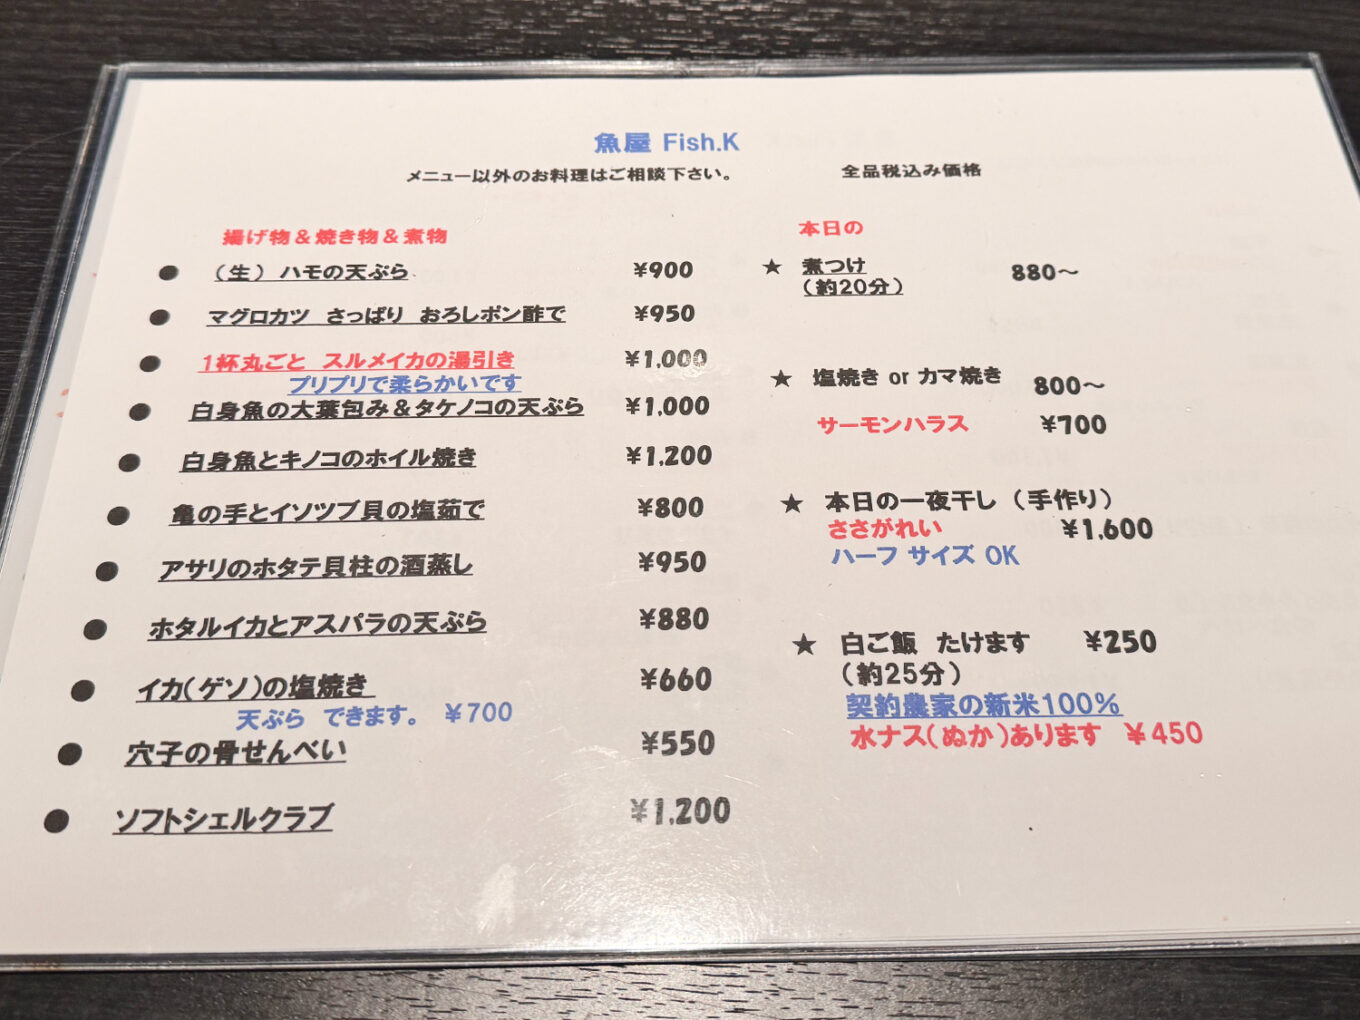 魚屋 Fish.K
メニュー以外のお料理はご相談下さい。 全品税込み価格
揚げ物＆焼き物＆煮物
● （生） ハモの天ぷら ¥900
● マグロカツ さっぱり おろしポン酢で ¥950
● 1杯丸ごと スルメイカの湯引き ¥1,000
プリプリで柔らかいです
● 白身魚の大葉包み＆タケノコの天ぷら ¥1,000
● 白身魚とキノコのホイル焼き ¥1,200
● 亀の手とイソツブ貝の塩茹で ¥800
● アサリのホタテ貝柱の酒蒸し ¥950
● ホタルイカとアスパラの天ぷら ¥880
● イカ（ゲソ）の塩焼き ¥660
天ぷら できます。 ¥700
● 穴子の骨せんべい ¥550
● ソフトシェルクラブ ¥1,200
本日の
★ 煮つけ 880～
（約20分）
★ 塩焼き or カマ焼き 800～
サーモンハラス ¥700
★ 本日の一夜干し（手作り）
ささがれい ¥1,600
ハーフ サイズ OK
★ 白ご飯 たけます ¥250
（約25分）
契約農家の新米100％
水ナス（ぬか）あります ¥450